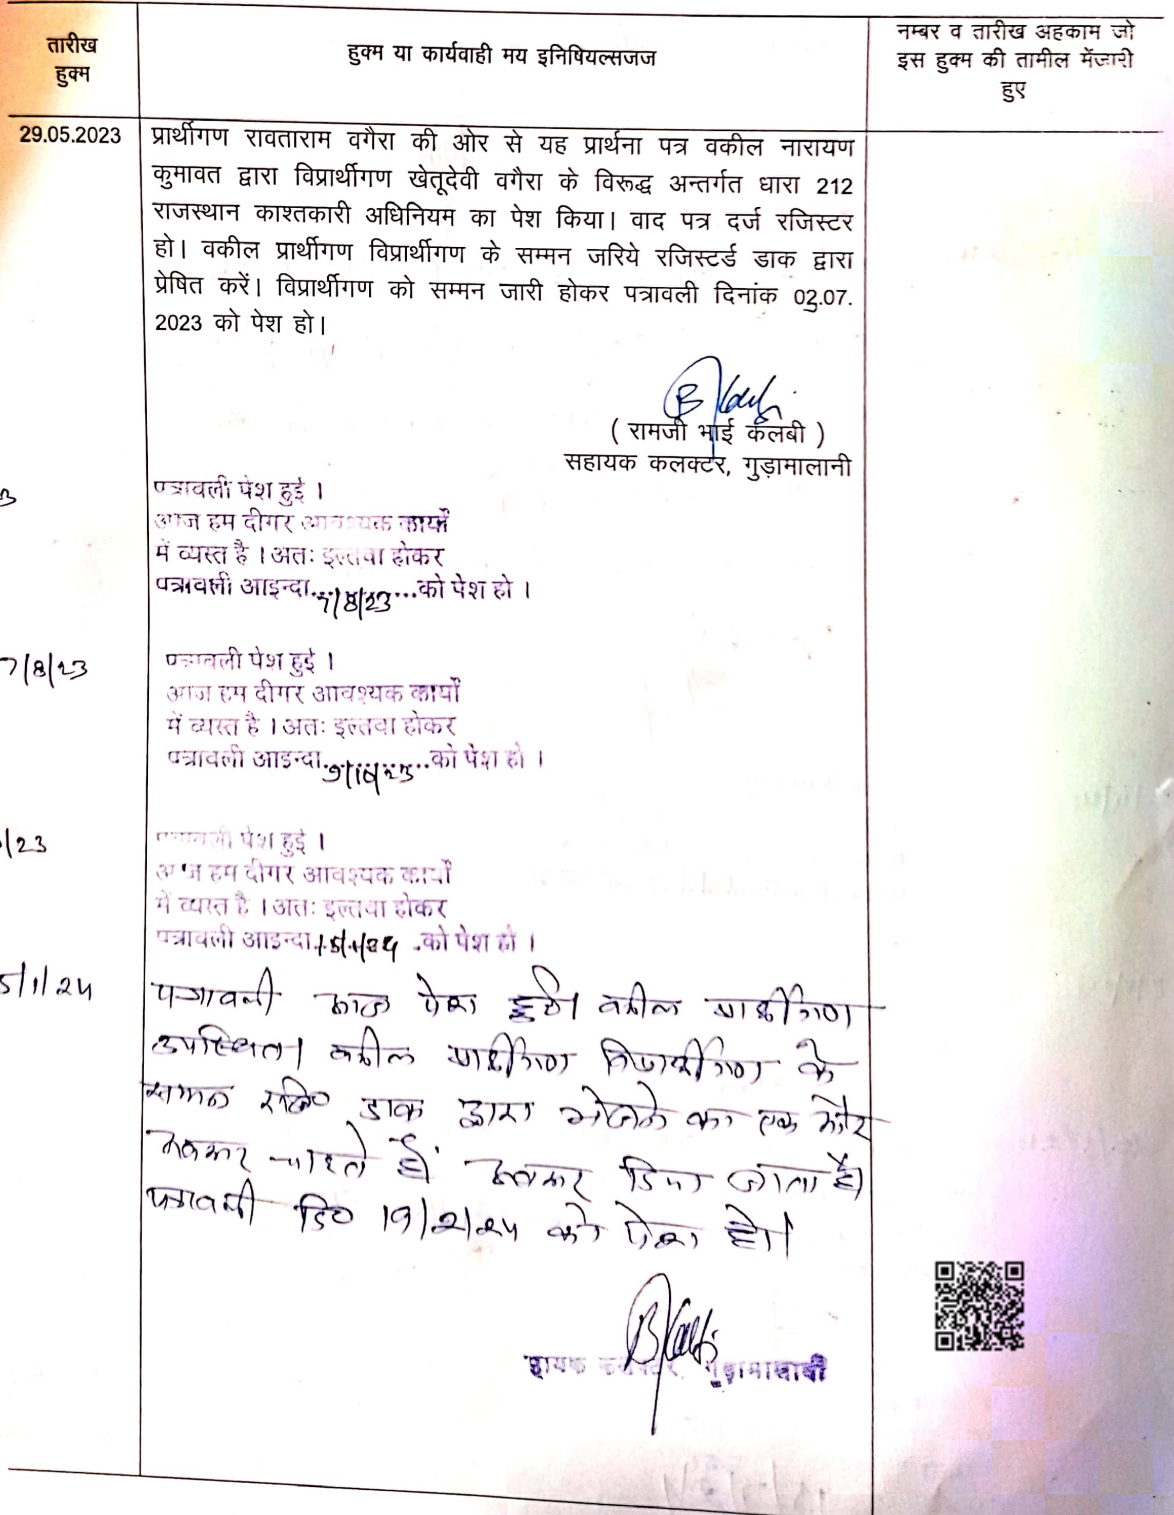 तारीख
हुक्म
हुक्म या कार्यवाही मय इनिषियल्सजज
नम्बर व तारीख अहकाम जो
इस हुक्म की तामील मेंजारी
हुए
29.05.2023
प्रार्थीगण रावताराम वगैरा की ओर से यह प्रार्थना पत्र वकील नारायण
कुमावत द्वारा विप्रार्थीगण खेतूदेवी वगैरा के विरूद्ध अन्तर्गत धारा 212
राजस्थान काश्तकारी अधिनियम का पेश किया। वाद पत्र दर्ज रजिस्टर
हो। वकील प्रार्थीगण विप्रार्थीगण के सम्मन जरिये रजिस्टर्ड डाक द्वारा
प्रेषित करें। विप्रार्थीगण को सम्मन जारी होकर पत्रावली दिनांक 03.07.
2023 को पेश हो।
( रामजी भाई कलबी )
सहायक कलक्टर, गुड़ामालानी
3
पत्रावली पेश हुई ।
आज हम दीगर आवश्यक कार्यों
में व्यस्त है । अतः इल्तवा होकर
पत्रावली आइन्दा 7/8/23 को पेश हो ।
7/8/23
पत्रावली पेश हुई ।
आज हम दीगर आवश्यक कार्यों
में व्यस्त है । अतः इल्तवा होकर
पत्रावली आइन्दा 9/10/23 को पेश हो ।
/23
पत्रावली पेश हुई ।
आज हम दीगर आवश्यक कार्यों
में व्यस्त है । अतः इल्तवा होकर
पत्रावली आइन्दा 15/1/24 को पेश हो ।
5/1/24
पत्रावली आज पेश हुई। वकील प्रार्थीगण
उपस्थित। वकील प्रार्थीगण विप्रार्थीगण के
सम्मन रजि० डाक द्वारा भेजने का एक और
अवसर चाहते हैं। अवसर दिया जाता है।
पत्रावली दि० 19/2/24 को पेश हो।
सहायक कलक्टर, गुड़ामालानी